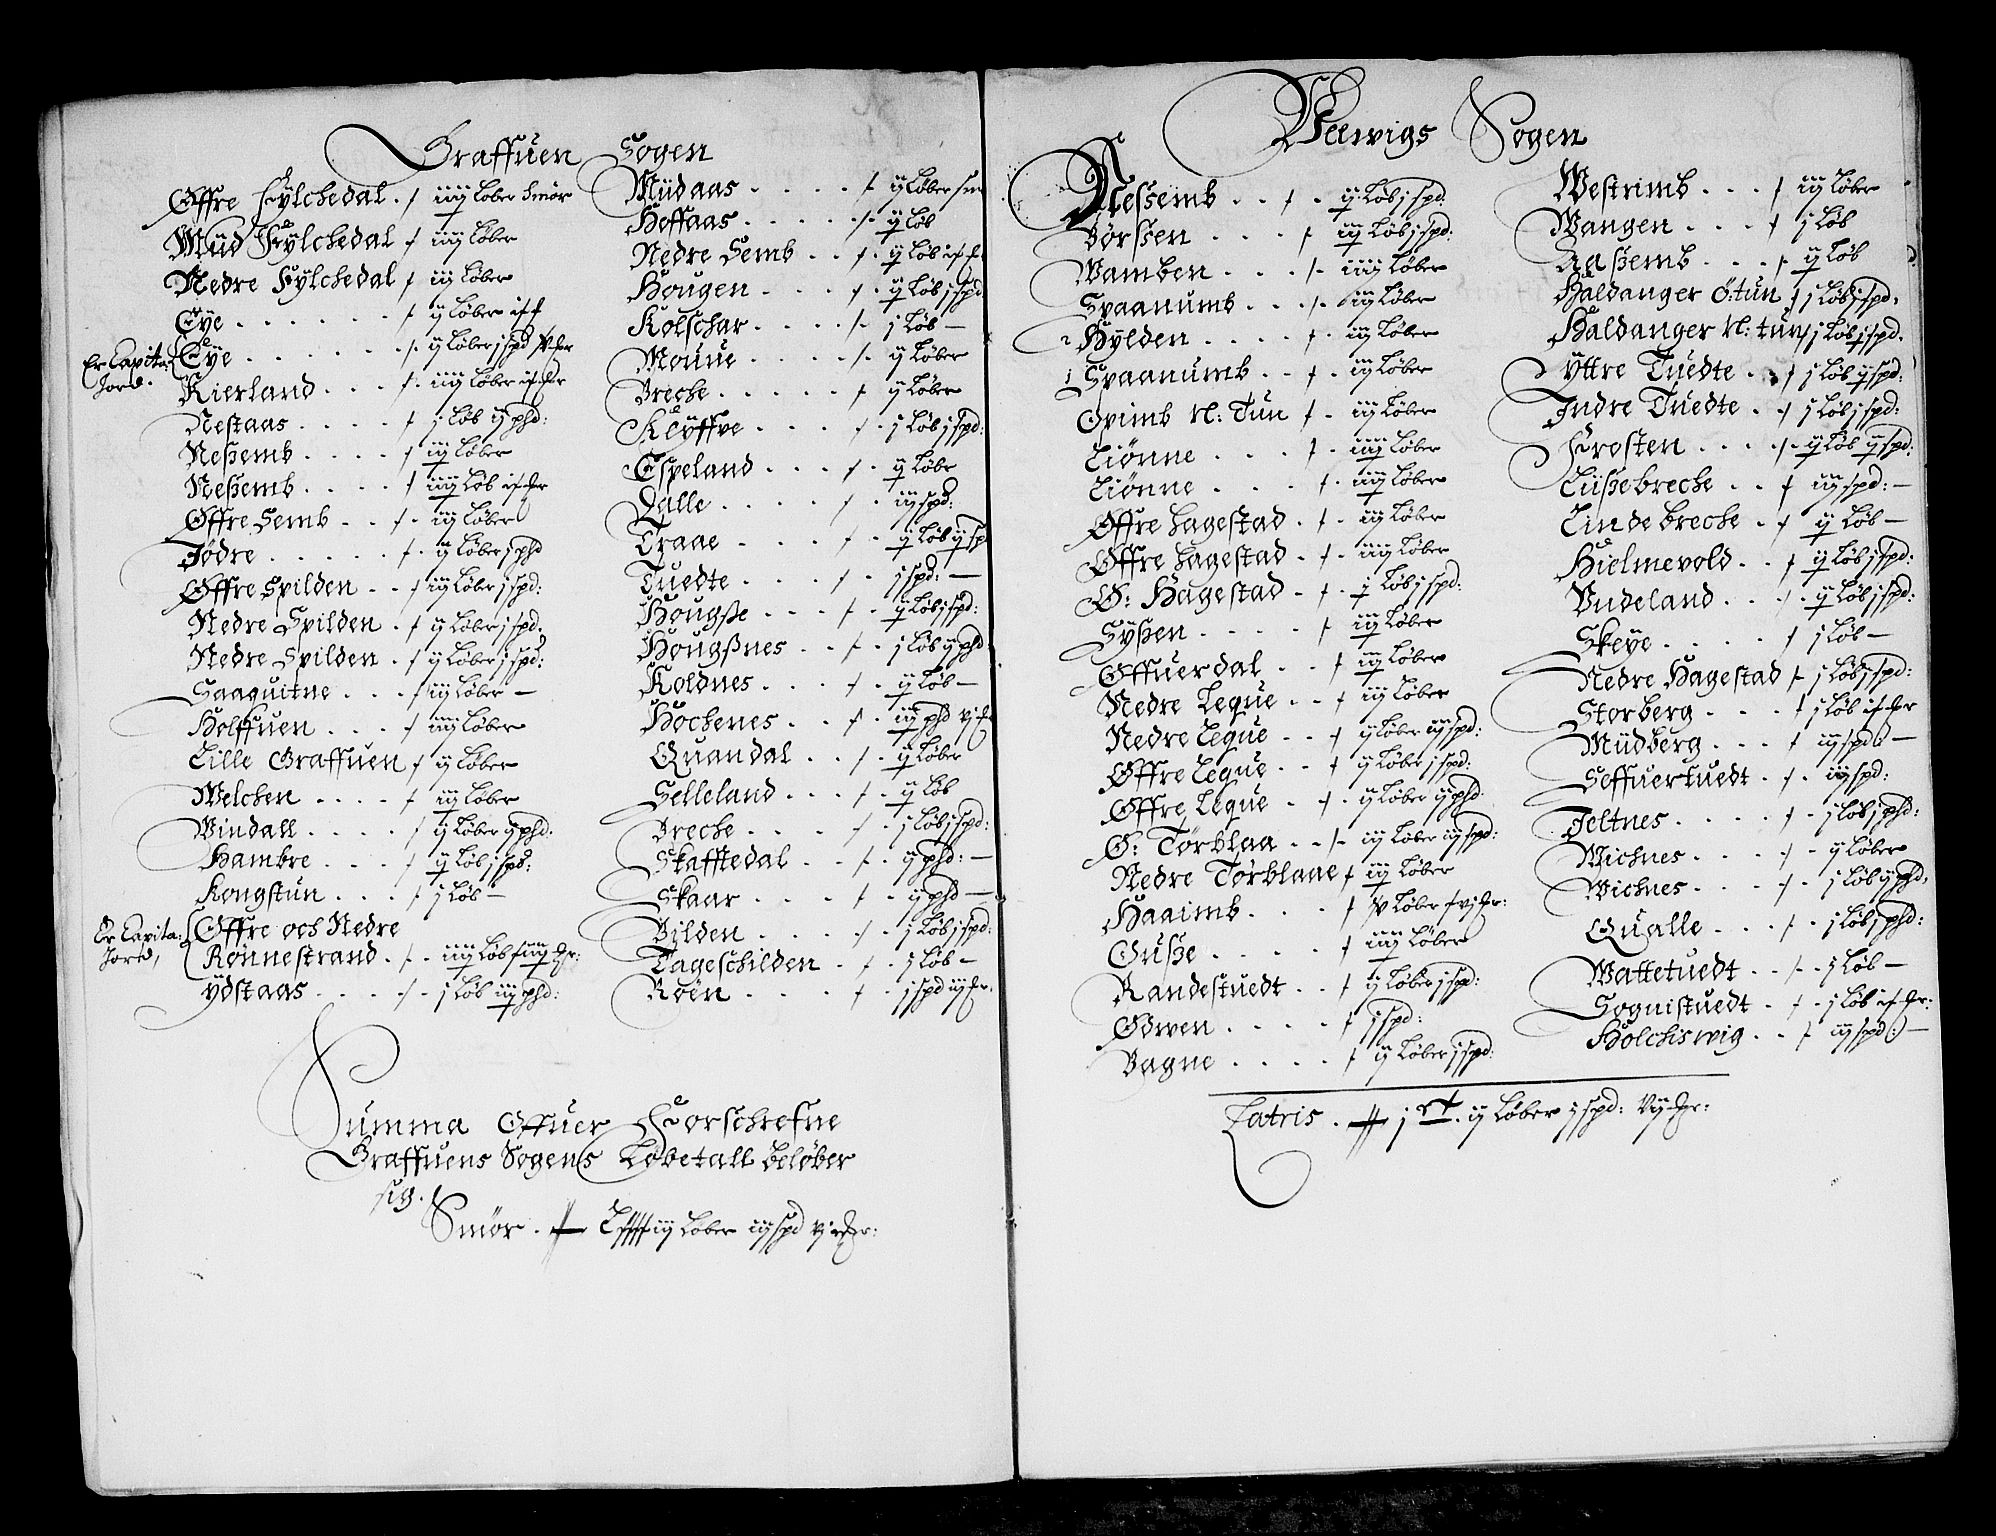 Graffuen Sogen
Øffre Fylchedal . / iiij Løber Smør
Müd Fylchedal / iiij Løber
Nedre Fylchedal / iij Løber
Eye . . . . . / ij Løber
Er Capit: Jord.
Eye . . . . . / ij Løber j spd
Kierland . . . / iiij Løber
Nestaas . . . . / j Løb ij phd:
Neßemb . . . . / iij Løber
Neßemb . . . . / iiij Løb
Øffre Semb . . / . iij Løber
Jødre . . . . . / . ij Løber j phd
Øffre Spilden . . / iij Løber j spd:
Nedre Spilden . / ij Løber j spd.
Nedre Spilden . / ij Løber j spd:
Saaquitne . . . / iij Løber —
Holffuen . . . / iiij Løber
Lille Graffuen / ij Løber
Welchen . . . . / iij Løber
Windall . . . . / ij Løber ij phd:
Hambre . . . . / ij Løb j spd:
Kongstun . . . / j Løb —
Er Capita: Jord,
Øffre och Nedre
Rønnestrand . / . iiij Løb
ydstaas . . . . / . j Løb iij phd:
Müdaas . . . . / . ij Løber
Hoffaas . . . . . / . ij Løb
Nedre Semb . . / . ij Løb
Hougen . . . . / . ij Løb j spd
Kolschar . . . . / . j Løb —
Monne . . . . . / . ij Løber
Breche . . . . . / ij Løber
Klyffve . . . . / . j Løb j spd:
Espeland . . . / . ij Løber
Dalle . . . . . / . iij spd:
Traae . . . . / . ij Løb ij sp
Tuedte . . . . / . j spd: —
Hougße . . . . / . ij Løb j spd:
Hougßnes . . . / . j Løb ij phd
Koldnes . . . . / . ij Løb —
Hochenes . . . / . iij phd
Quandal . . . / . ij Løber
Selleland . . . / . ij Løb
Breche . . . . / . j Løb j spd:
Skafftedal . . . / . ij phd: —
Skaar . . . . . / . ij phd —
Bilden . . . . . / . j Løb j spd:
Tageschilden . / . j Løb —
Røen . . . . . / . j spd
Summa Offuer Forschrefne
Graffuens Sogens Løbetall beløber
sig.
Smør . iij Løber iij spd
Vlwigs Sogen
Neßemb . . / . . ij Løb j spd.
Børßen . . . . / iij Løb j spd:
Wamben . . . / . iiij Løber
Spaanumb . . . / . iij Løber
Hylden . . . . / . iij Løber
Spaanumb . . / . iij Løber
Opimb N: Tun / . iij Løber
Liønne . . . . / . iiij Løber
Liønne . . . . / . iiij Løber
Øffre Hagestad . / . iij Løber
Øffre Hagestad . / . iiij Løber
Ø: Hagestad . / . ij Løb j spd:
Syßen . . . . . / iij Løber
Offuerdal . . / iij Løber
Nedre Leque . . / iij Løber
Nedre Leque . . / ij Løber iij spd:
Øffre Leque . . / ij Løber j spd:
Øffre Leque . . / . ij Løber ij phd:
Ø: Tørblaa . . / . iij Løber iij spd:
Nedre Tørblaae / iij Løber
Haaimb . . . . / Løber
Gusße . . . . . / iiij Løber
Randestuedt . . / ij Løber j spd:
Odwen . . . . . / j spd:
Bagne . . . . . / ij Løber j spd:
Westrimb . . . / iij Løber
Wangen . . . / j Løb
Aaßemb . . . . / . ij Løb
Haldanger Ø:tun / j Løb j spd.
Haldanger N: tun / j Løb j spd.
yttre Tuedte . . / j Løb ij spd:
Indre Tuedte . . / j Løb j spd:
Frosten . . . . / . ij Løb ij spd:
Lüßebreche . . / iij spd: —
Lindebreche . / ij Løb —
Hielmevold . . / ij Løb j spd:
Vndeland . . . / . ij Løb j spd:
Skeye . . . . . / j Løb —
Nedre Hagestad / j Løb j spd:
Storberg . . . . / j Løb
Müdberg . . . / iij spd: —
Seffuertuedt . . / . iij spd:
Jeltnes . . . . . / . j Løb j phd:
Wichnes . . . . / . ij Løber
Wichnes . . . . / . j Løb ij phd,
Qualle . . . . / . j Løb j phd:
Wattetuedt . . / . j Løb —
Sognistuedt . / . j Løb
Holchiswig . . / iij spd: —
Latris . j . ij Løber j spd: